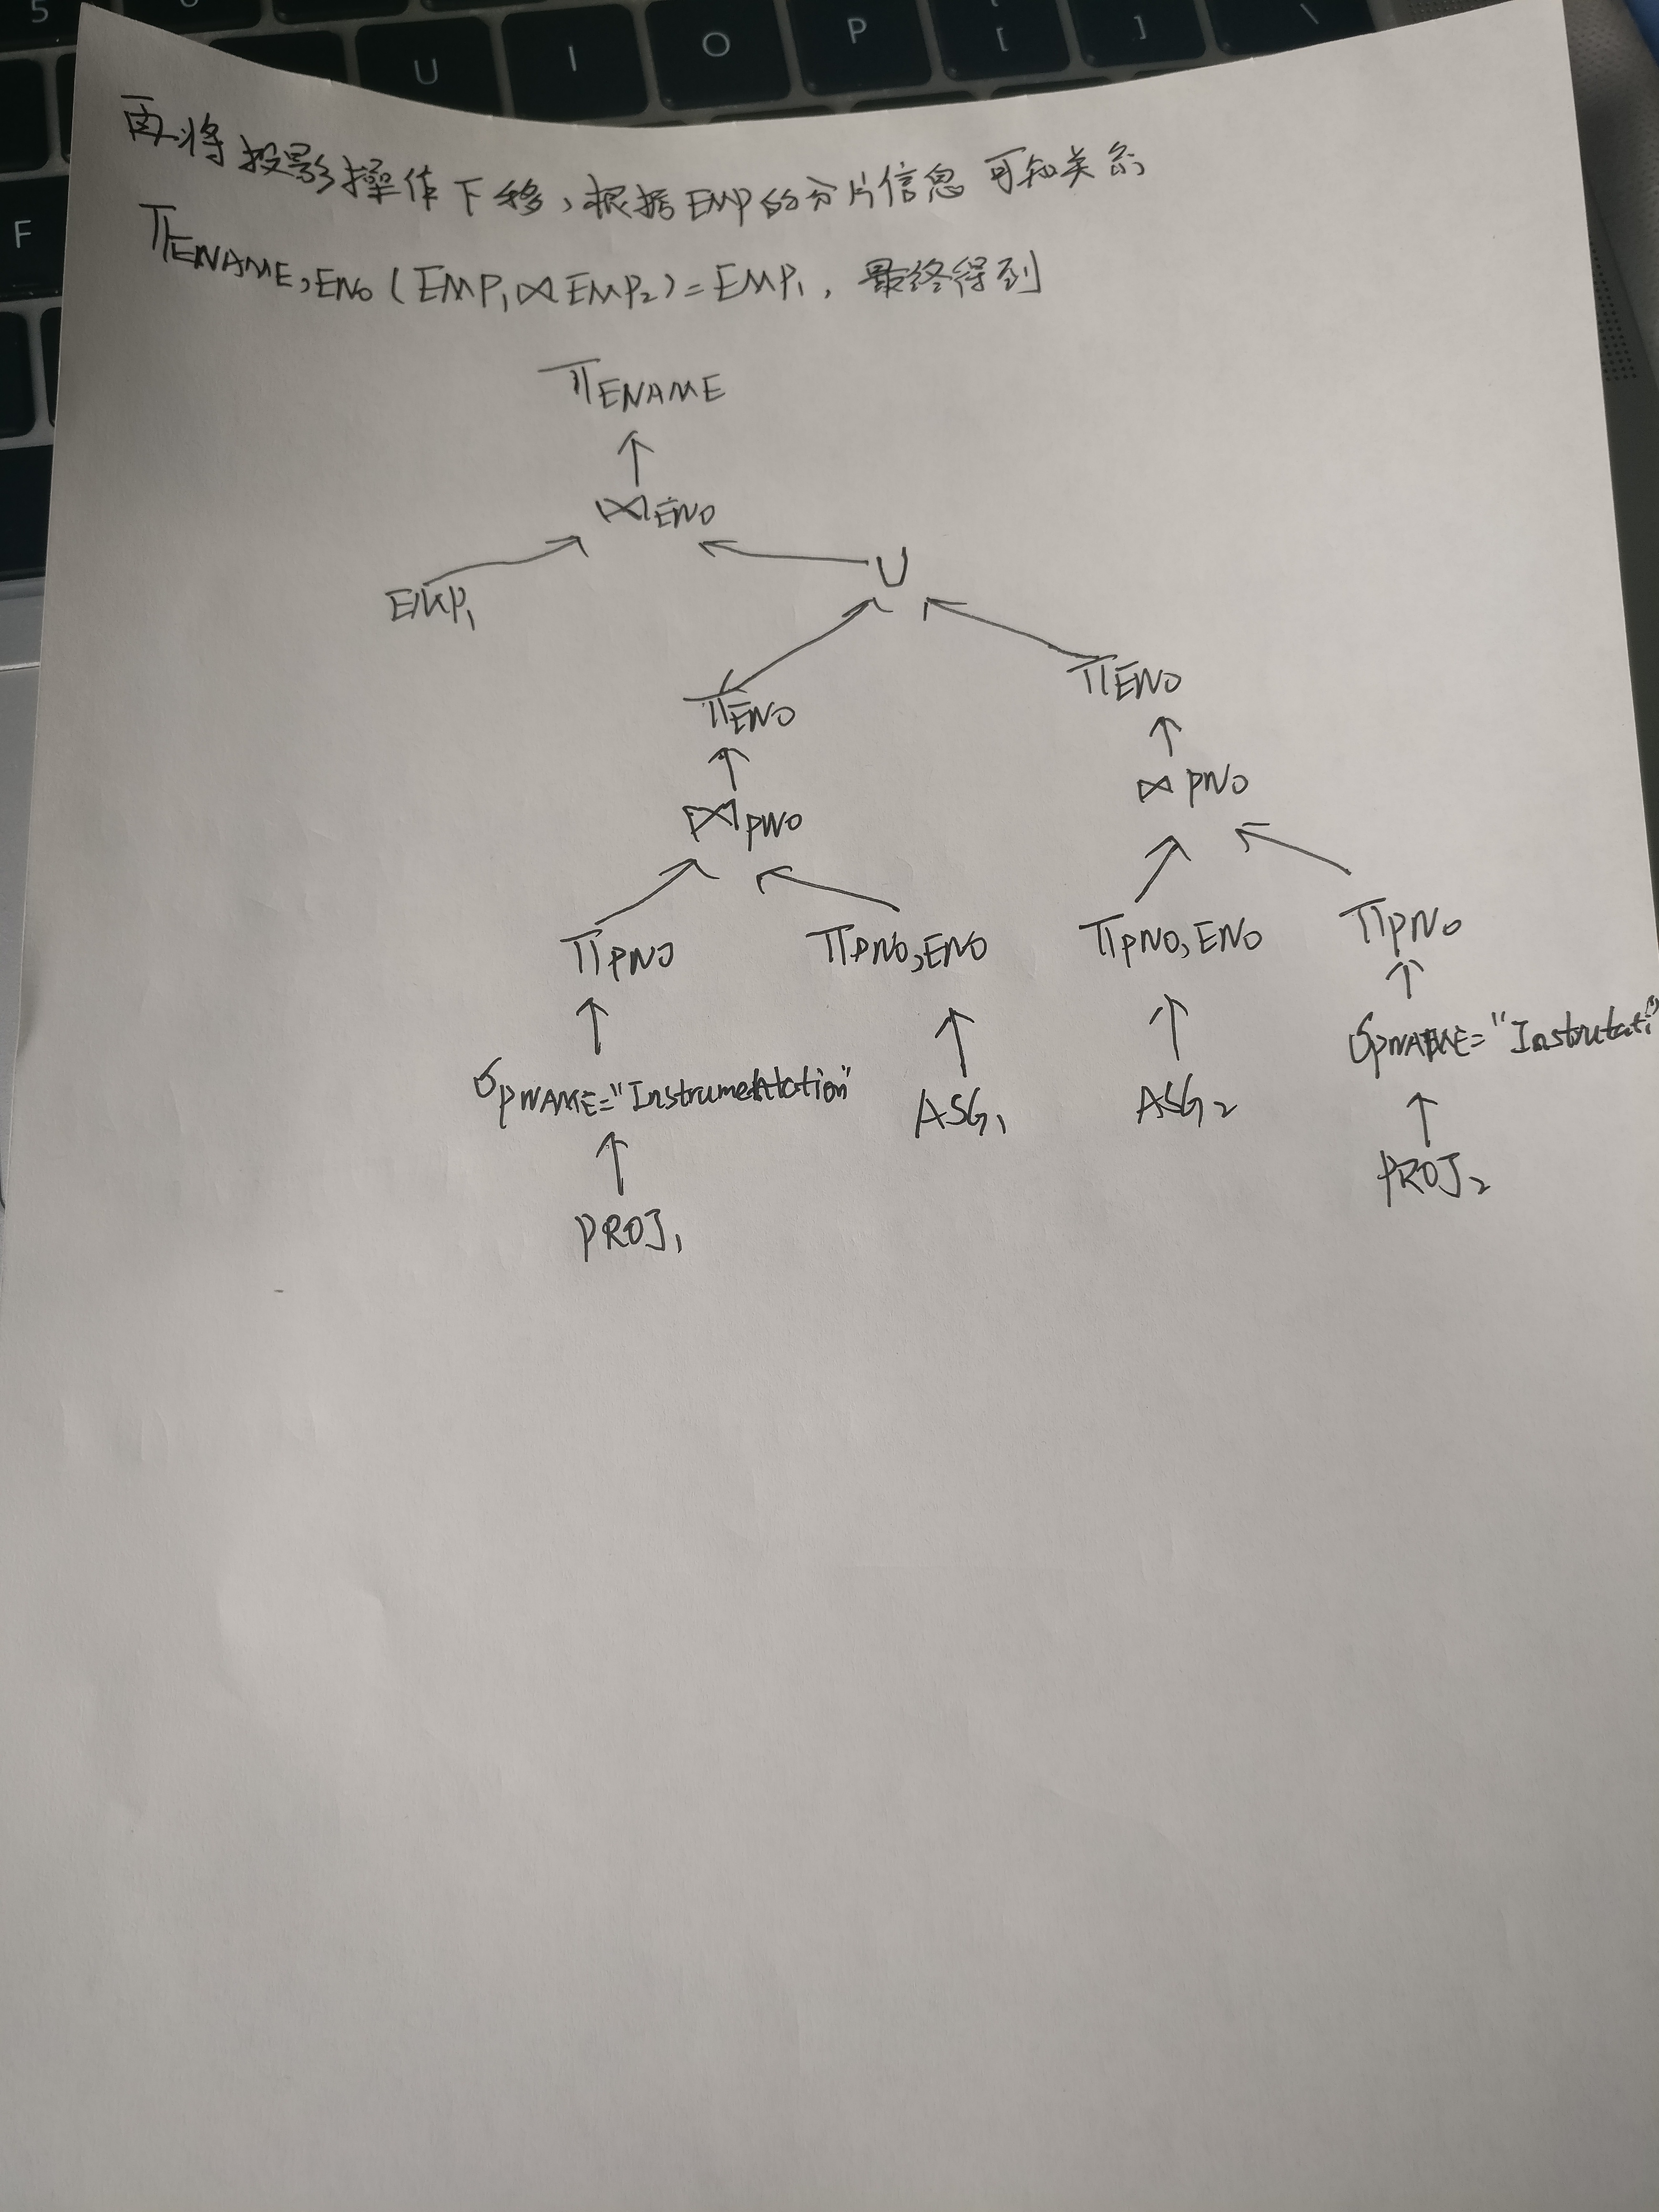 5
U I O P [ ] \
F
再将投影操作下移，根据EMP的分片信息可知关系
πENAME,ENO(EMP₁⋈EMP₂)=EMP₁，最终得到
πENAME
⋈ENO
EMP₁ U
πENO πENO
⋈PNO ⋈PNO
πPNO πPNO,ENO πPNO,ENO πPNO
σPNAME="Instrumentation" ASG₁ ASG₂ σPNAME="Instrutati
PROJ₁ PROJ₂